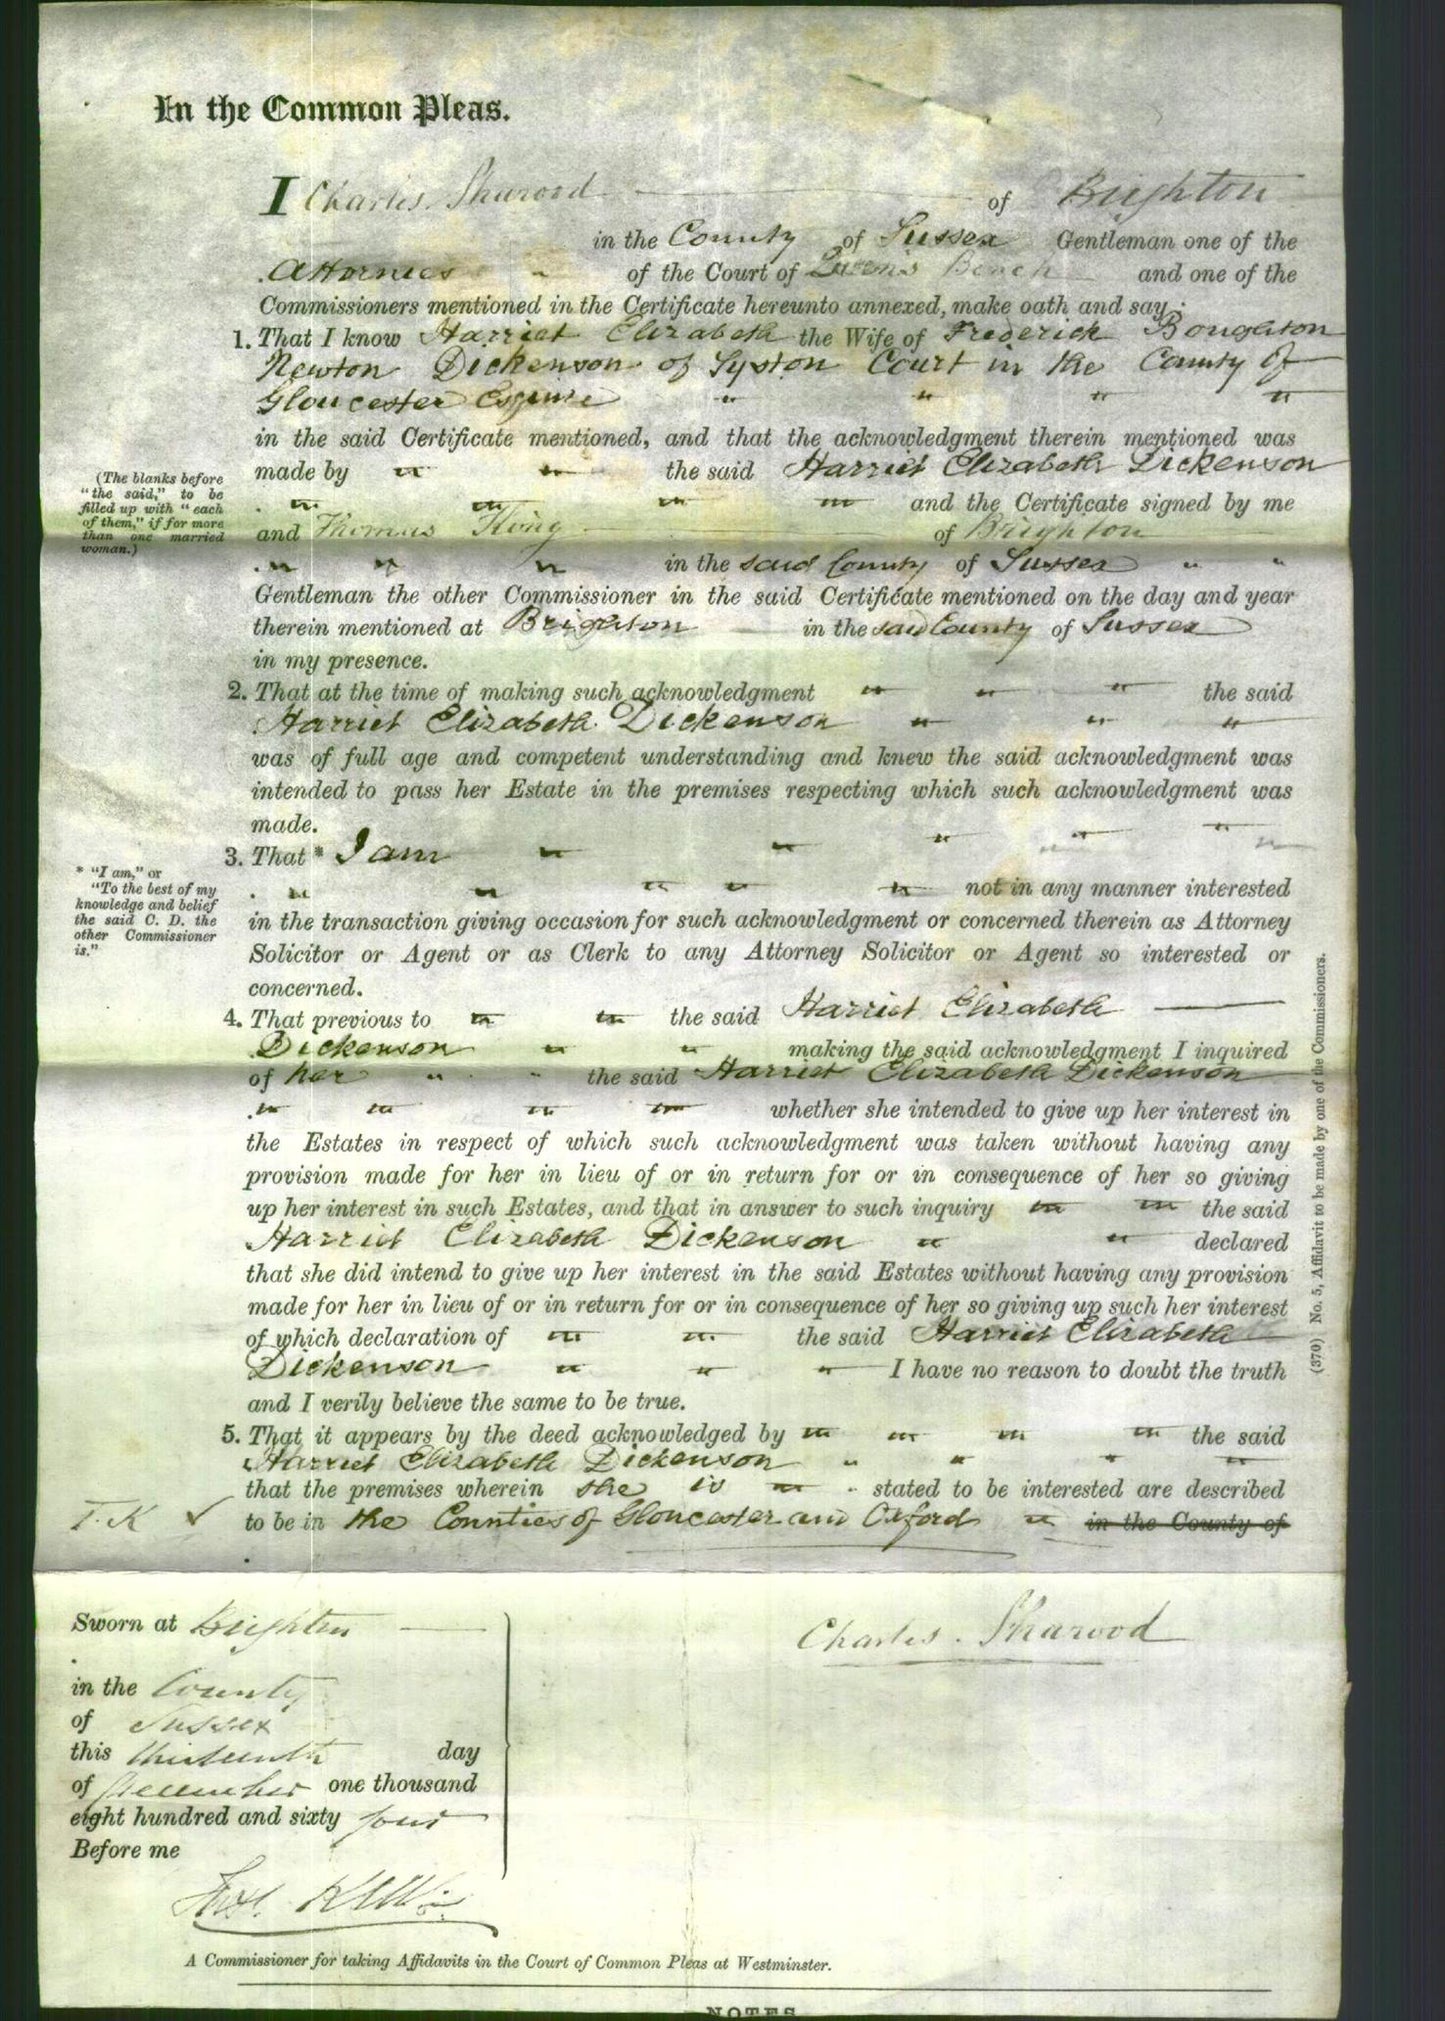 In the Common Pleas.
I Charles Sharood of Brighton
in the County of Sussex Gentleman one of the
Attornies " of the Court of Queen's Bench and one of the
Commissioners mentioned in the Certificate hereunto annexed, make oath and say:
1. That I know Harriet Elizabeth the Wife of Frederick Boughton
Newton Dickenson of Syston Court in the County of
Gloucester Esquire " " " "
in the said Certificate mentioned, and that the acknowledgment therein mentioned was
made by " " the said Harriet Elizabeth Dickenson
" " " " and the Certificate signed by me
and Thomas of Brighton
" " " in the said County of Sussex " "
Gentleman the other Commissioner in the said Certificate mentioned on the day and year
therein mentioned at Brighton in the said County of Sussex
in my presence.
(The blanks before
"the said," to be
filled up with "each
of them," if for more
than one married
woman.)
2. That at the time of making such acknowledgment " " " the said
Harriet Elizabeth Dickenson " " "
was of full age and competent understanding and knew the said acknowledgment was
intended to pass her Estate in the premises respecting which such acknowledgment was
made.
3. That * I am " " " " " "
" " " " " not in any manner interested
in the transaction giving occasion for such acknowledgment or concerned therein as Attorney
Solicitor or Agent or as Clerk to any Attorney Solicitor or Agent so interested or
concerned.
* "I am," or
"To the best of my
knowledge and belief
the said C. D. the
other Commissioner
is."
4. That previous to " " the said Harriet Elizabeth
Dickenson " " making the said acknowledgment I inquired
of her " " the said Harriet Elizabeth Dickenson
" " " " whether she intended to give up her interest in
the Estates in respect of which such acknowledgment was taken without having any
provision made for her in lieu of or in return for or in consequence of her so giving
up her interest in such Estates, and that in answer to such inquiry " " the said
Harriet Elizabeth Dickenson " " declared
that she did intend to give up her interest in the said Estates without having any provision
made for her in lieu of or in return for or in consequence of her so giving up such her interest
of which declaration of " " the said Harriet Elizabeth
Dickenson " " " I have no reason to doubt the truth
and I verily believe the same to be true.
5. That it appears by the deed acknowledged by " " " " the said
Harriet Elizabeth Dickenson " " " "
that the premises wherein she is " " stated to be interested are described
T. K ✓ to be in the Counties of Gloucester and Oxford " in the County of
(370) No. 5, Affidavit to be made by one of the Commissioners.
Sworn at Brighton
in the County
of Sussex
this thirteenth day
of December one thousand
eight hundred and sixty four
Before me
Charles Sharood
A Commissioner for taking Affidavits in the Court of Common Pleas at Westminster.
NOTES